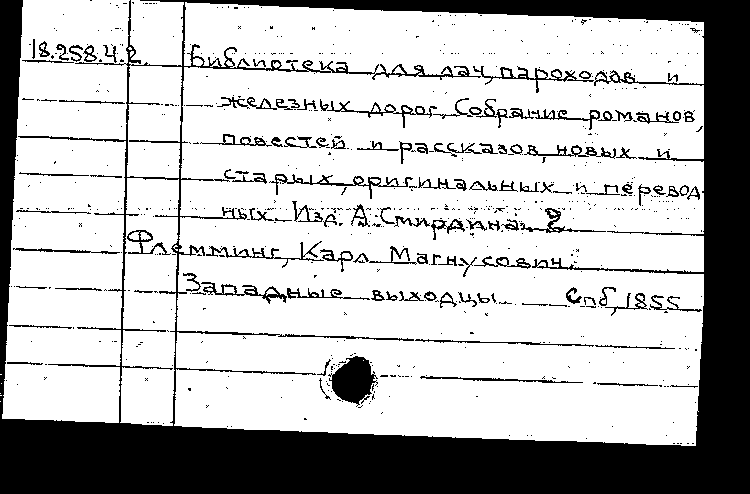 18.258.4.2. Библиотека для дач, пароходов и
железных дорог. Собрание романов,
повестей и рассказов, новых и
старых, оригинальных и перевод-
ных. Изд. А. Смирдина. 2
Флемминг, Карл Магнусович.
Западные выходцы. Спб, 1855